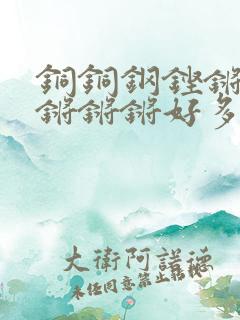 銅銅鋼鏗鏘
鏘鏘鏘好多
大衛阿諾德
未经同意禁止转载